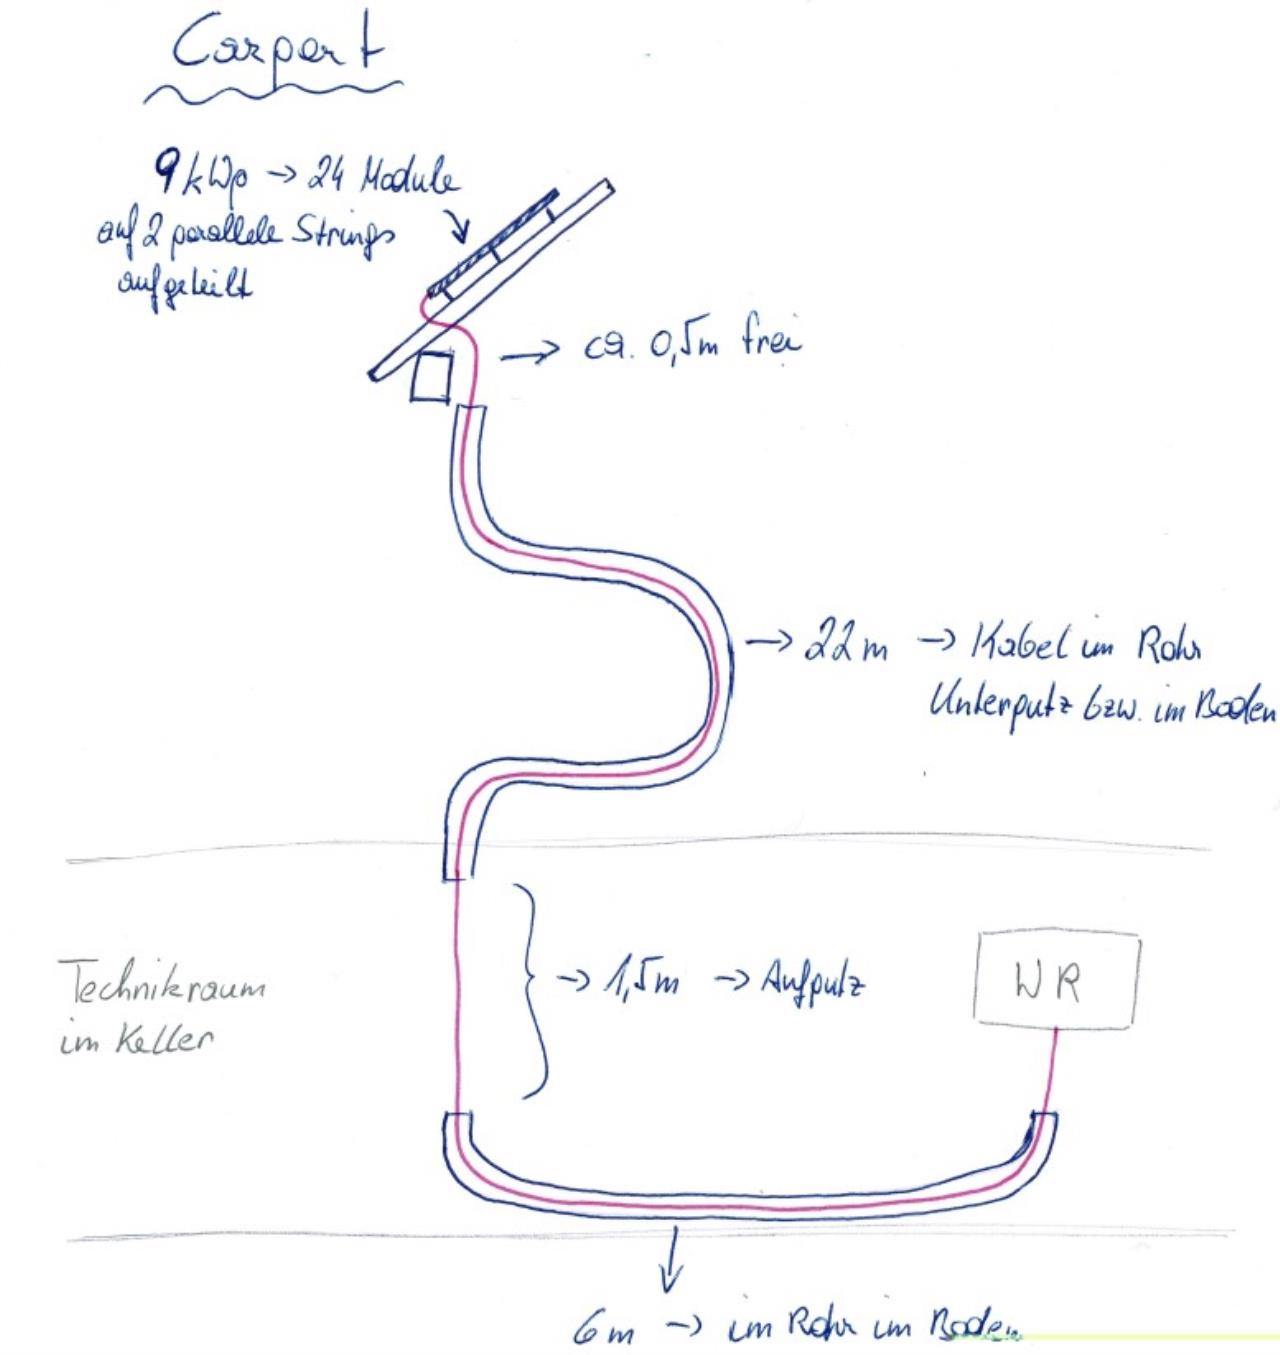 Carport
9 kWp → 24 Module
auf 2 parallele Strings
aufgeteilt
→ ca. 0,5m frei
→ 22m → Kabel im Rohr
Unterputz bzw. im Boden
Technikraum
im Keller
→ 1,5m → Aufputz
WR
6m → im Rohr im Boden